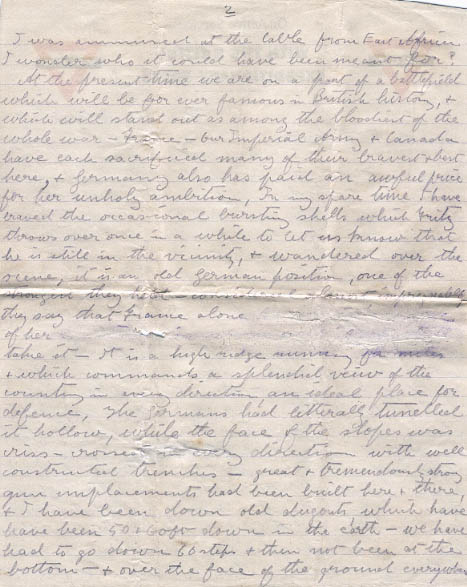 2
I was amused at the cable from East Africa
I wonder who it could have been meant for?
At the present time we are on a part of a battlefield
which will be for ever famous in British history, &
which will stand out as among the bloodiest of the
whole war – France – our Imperial Army & Canada
have each sacrificed many of their bravest & best
here, & Germany also has paid an awful price
for her unholy ambition, In my spare time I have
braved the occasional bursting shells which Fritz
throws over once in a while to let us know that
he is still in the vicinity, & wandered over the
scene, it is an old German position, one of the
strongest they held – considered almost impregnable
they say that France alone
of her
take it – It is a high ridge running for miles
& which commands a splendid view of the
country in every direction an ideal place for
defence, The Germans had litterally tunelled
it hollow, while the face of the slopes was
criss-crossed in every direction with well
constructed trenches – great & tremendously strong
gun implacements had been built here & there,
& I have been down old dugouts which have
have been 50 & 60 ft down in the earth – we have
had to go down 60 steps & then not been at the
bottom – & over the face of the ground everywhere